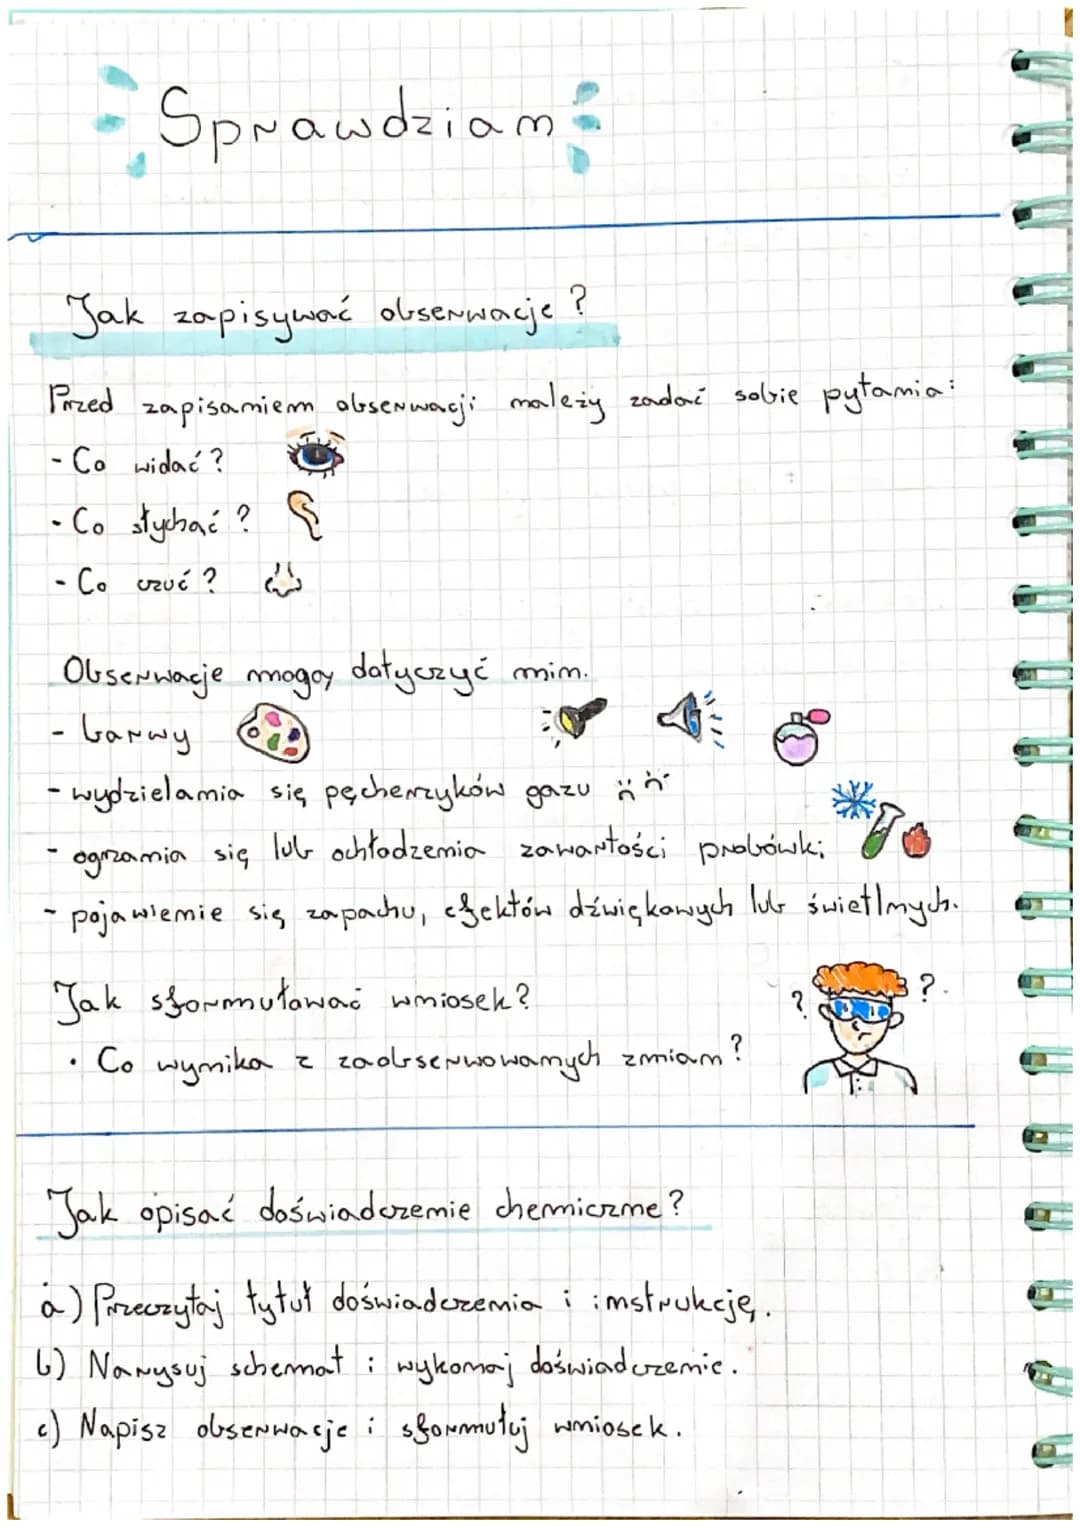 Sprawdzian
Jak zapisywać obserwacje?
Przed zapisaniem obserwacji należy zadać sobie pytania:
- Co widać?
- Co słychać?
- Co czuć?
Obserwacje mogą dotyczyć min.
- barwy
- wydzielania się pęcherzyków gazu
- ogrzania się lub ochłodzenia zawartości probówki
- pojawienie się zapachu, efektów dźwiękowych lub świetlnych.
Jak sformułować wniosek?
? ?
• Co wynika z zaobserwowanych zmian?
Jak opisać doświadczenie chemiczne?
a) Przeczytaj tytuł doświadczenia i instrukcję.
b) Narysuj schemat i wykonaj doświadczenie.
c) Napisz obserwacje i sformułuj wniosek.